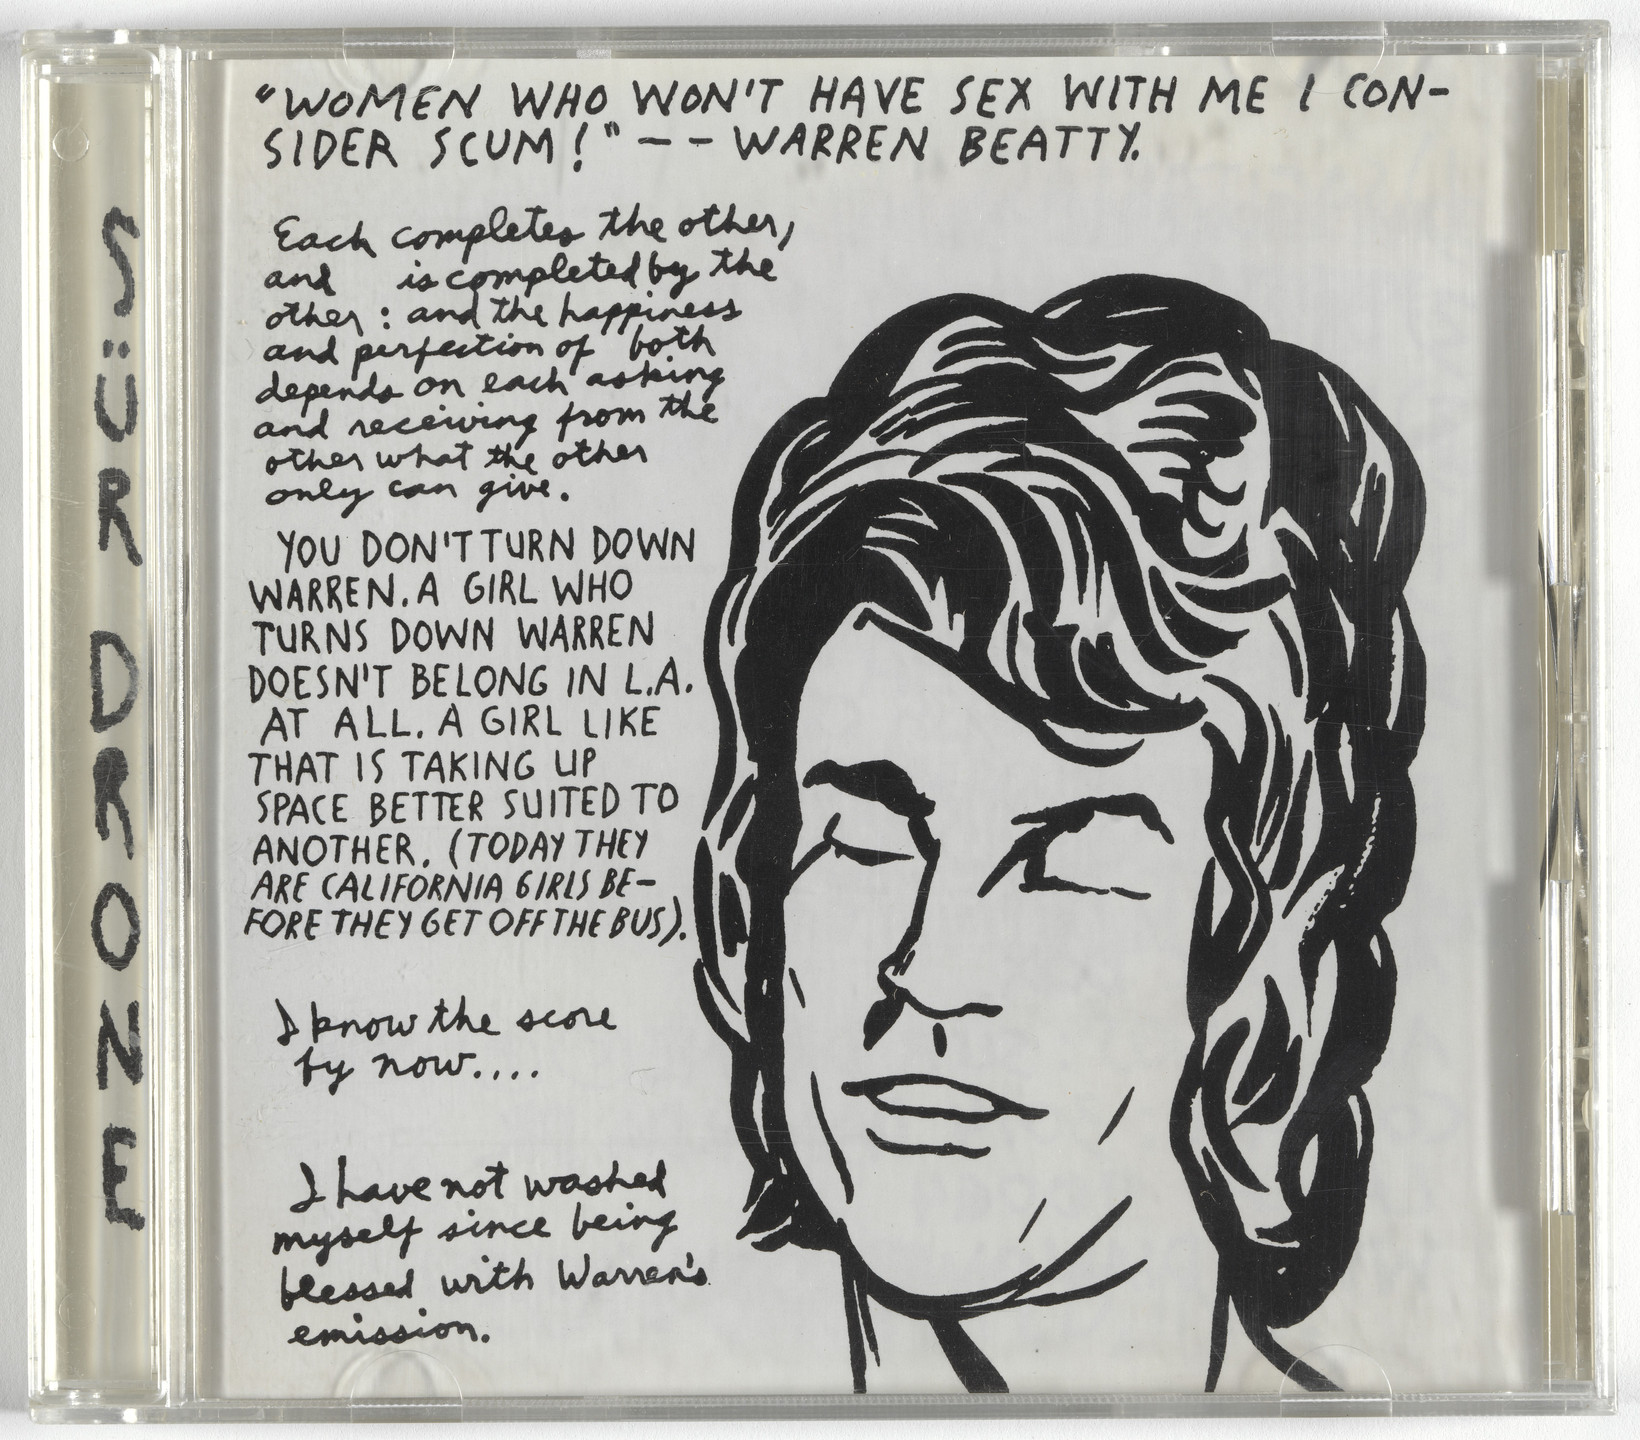 SÜR DRONE
"WOMEN WHO WON'T HAVE SEX WITH ME I CON-
SIDER SCUM!" -- WARREN BEATTY.
Each completes the other,
and is completed by the
other: and the happiness
and perfection of both
depends on each asking
and receiving from the
other what the other
only can give.
YOU DON'T TURN DOWN
WARREN. A GIRL WHO
TURNS DOWN WARREN
DOESN'T BELONG IN L.A.
AT ALL. A GIRL LIKE
THAT IS TAKING UP
SPACE BETTER SUITED TO
ANOTHER. (TODAY THEY
ARE CALIFORNIA GIRLS BE-
FORE THEY GET OFF THE BUS).
I know the score
by now....
I have not washed
myself since being
blessed with Warren's
emission.